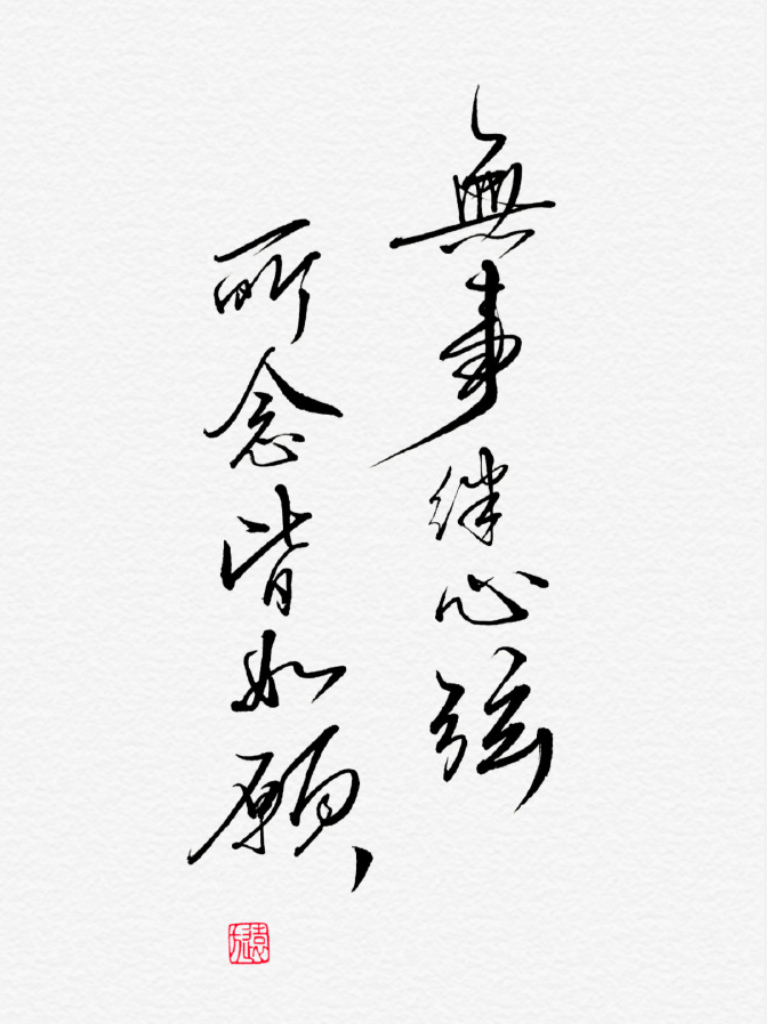 無事絆心弦
所念皆如願